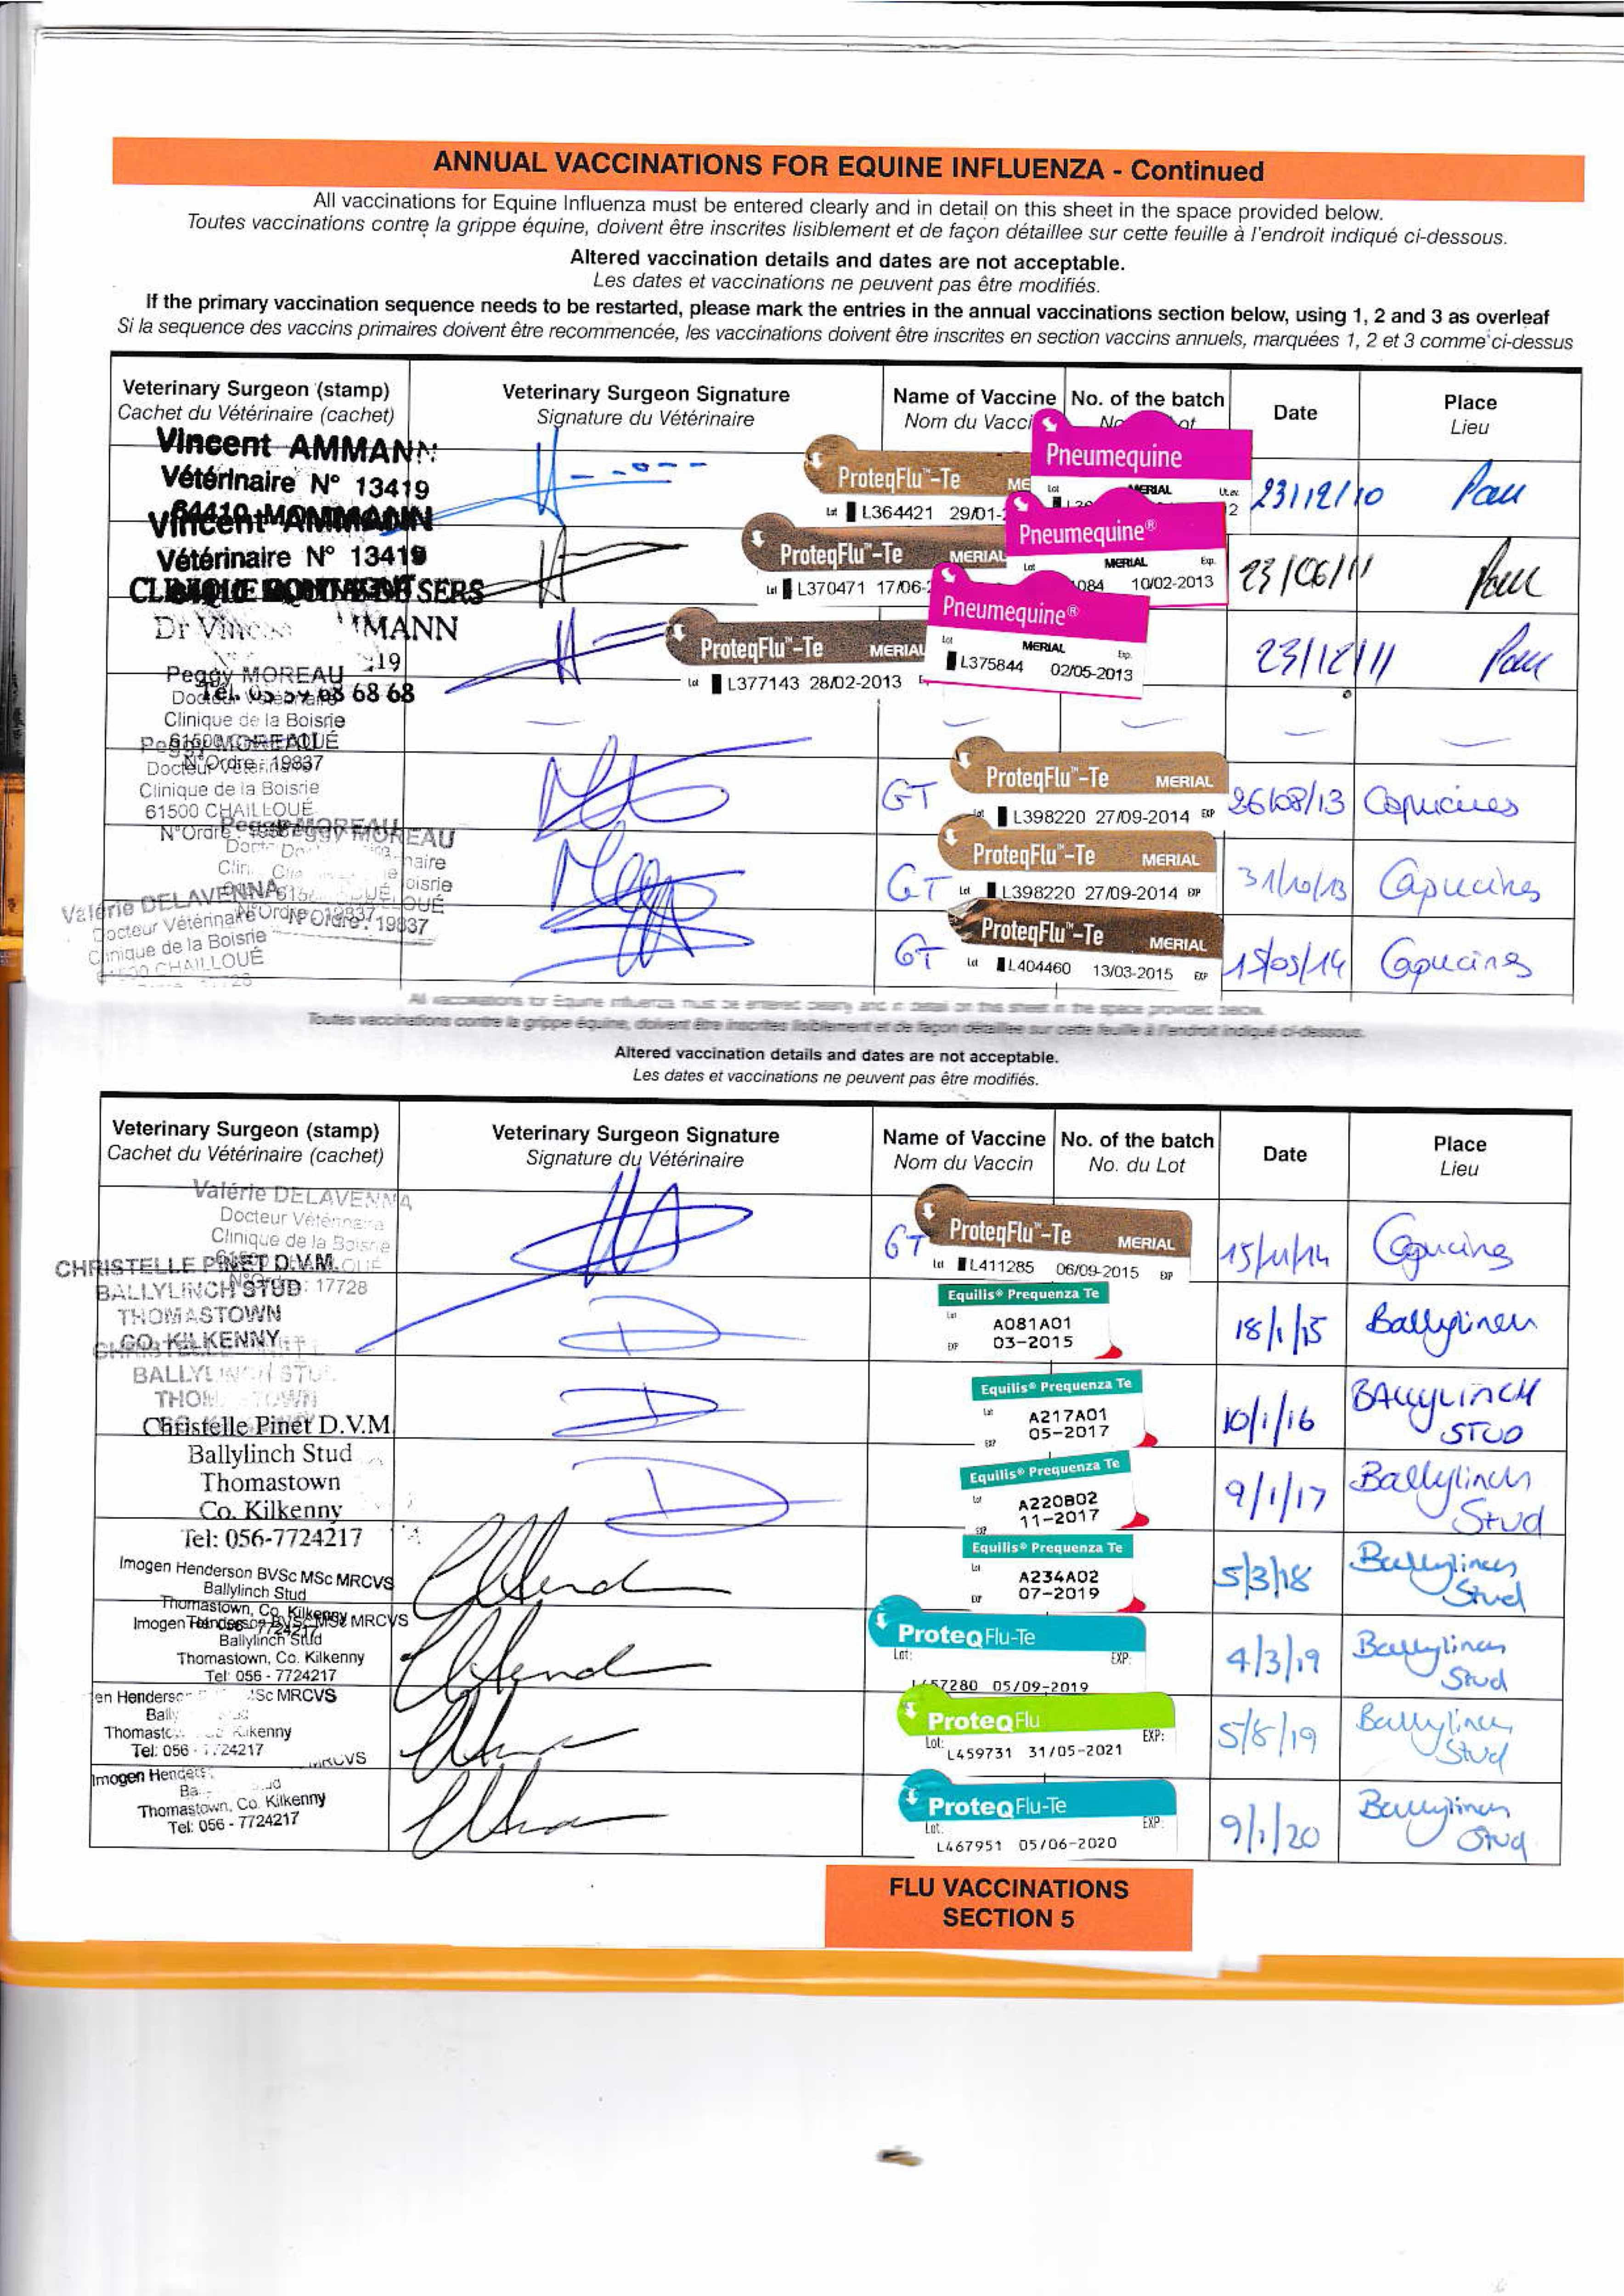 ANNUAL VACCINATIONS FOR EQUINE INFLUENZA - Continued
All vaccinations for Equine Influenza must be entered clearly and in detail on this sheet in the space provided below.
Toutes vaccinations contre la grippe équine, doivent être inscrites lisiblement et de façon détaillee sur cette feuille à l'endroit indiqué ci-dessous.
Altered vaccination details and dates are not acceptable.
Les dates et vaccinations ne peuvent pas être modifiés.
If the primary vaccination sequence needs to be restarted, please mark the entries in the annual vaccinations section below, using 1, 2 and 3 as overleaf
Si la sequence des vaccins primaires doivent être recommencée, les vaccinations doivent être inscrites en section vaccins annuels, marquées 1, 2 et 3 comme ci-dessus
Veterinary Surgeon (stamp) Veterinary Surgeon Signature Name of Vaccine No. of the batch Date Place
Cachet du Vétérinaire (cachet) Signature du Vétérinaire Nom du Vacci Lieu
Vincent AMMANN
Vétérinaire N° 13419
ProteqFlu™-Te
L364421 29/01-
Pneumequine
MERIAL
23/12/10 Pau
Vincent AMMANN
Vétérinaire N° 13419
ProteqFlu™-Te MERIAL
L370471 17/06-
Pneumequine®
MERIAL
Lot Exp.
084 10/02-2013
23/06/11 Pau
SERS
MMANN
68 68
ProteqFlu™-Te MERIAL
Lot L377143 28/02-2013
Pneumequine®
Lot MERIAL Exp.
L375844 02/05-2013
23/12/11 Pau
Peggy MOREAU
Clinique de la Boisrie
Peggy MOREAU
N°Ordre : 19837
Clinique de la Boisrie
61500 CHAILLOUÉ
GT ProteqFlu™-Te MERIAL
L398220 27/09-2014 EXP
26/08/13 Capucines
Peggy MOREAU
GT ProteqFlu™-Te MERIAL
Lot L398220 27/09-2014 EXP
31/10/13 Capucines
Valérie DELAVENNA
Docteur Vétérinaire
Clinique de la Boisrie
CHAILLOUÉ
GT ProteqFlu™-Te MERIAL
Lot L404460 13/03-2015 EXP
15/03/14 Capucines
All vaccinations for Equine Influenza must be entered clearly and in detail on this sheet in the space provided below.
Toutes vaccinations contre la grippe équine, doivent être inscrites lisiblement et de façon détaillée sur cette feuille à l'endroit indiqué ci-dessous.
Altered vaccination details and dates are not acceptable.
Les dates et vaccinations ne peuvent pas être modifiés.
Veterinary Surgeon (stamp) Veterinary Surgeon Signature Name of Vaccine No. of the batch Date Place
Cachet du Vétérinaire (cachet) Signature du Vétérinaire Nom du Vaccin No. du Lot Lieu
Valérie DELAVENNA
Docteur Vétérinaire
Clinique de la Boisrie
17728
GT ProteqFlu™-Te MERIAL
Lot L411285 06/09-2015 EXP
15/11/14 Capucines
CHRISTELLE PINET D.V.M.
BALLYLINCH STUD
THOMASTOWN
CO. KILKENNY
Equilis® Prequenza Te
Lot A081A01
EXP 03-2015
18/1/15 Ballylinch
BALLYLINCH STUD
Equilis® Prequenza Te
Lot A217A01
EXP 05-2017
10/1/16 BALLYLINCH STUD
Christelle Pinet D.V.M.
Ballylinch Stud
Thomastown
Co. Kilkenny
Tel: 056-7724217
Equilis® Prequenza Te
Lot A220B02
EXP 11-2017
9/1/17 Ballylinch Stud
Imogen Henderson BVSc MSc MRCVS
Ballylinch Stud
Thomastown, Co. Kilkenny
Equilis® Prequenza Te
Lot A234A02
EXP 07-2019
5/3/18 Ballylinch Stud
Imogen Henderson BVSc MSc MRCVS
Ballylinch Stud
Thomastown, Co. Kilkenny
Tel: 056 - 7724217
ProteqFlu-Te
Lot: EXP:
L457280 05/09-2019
4/3/19 Ballylinch Stud
en Henderson MSc MRCVS
Tel: 056 - 7724217
ProteqFlu
Lot: EXP:
L459731 31/05-2021
5/8/19 Ballylinch Stud
MRCVS
Imogen
Thomastown, Co. Kilkenny
Tel: 056 - 7724217
ProteqFlu-Te
Lot: EXP:
L467951 05/06-2020
9/1/20 Ballylinch Stud
FLU VACCINATIONS
SECTION 5